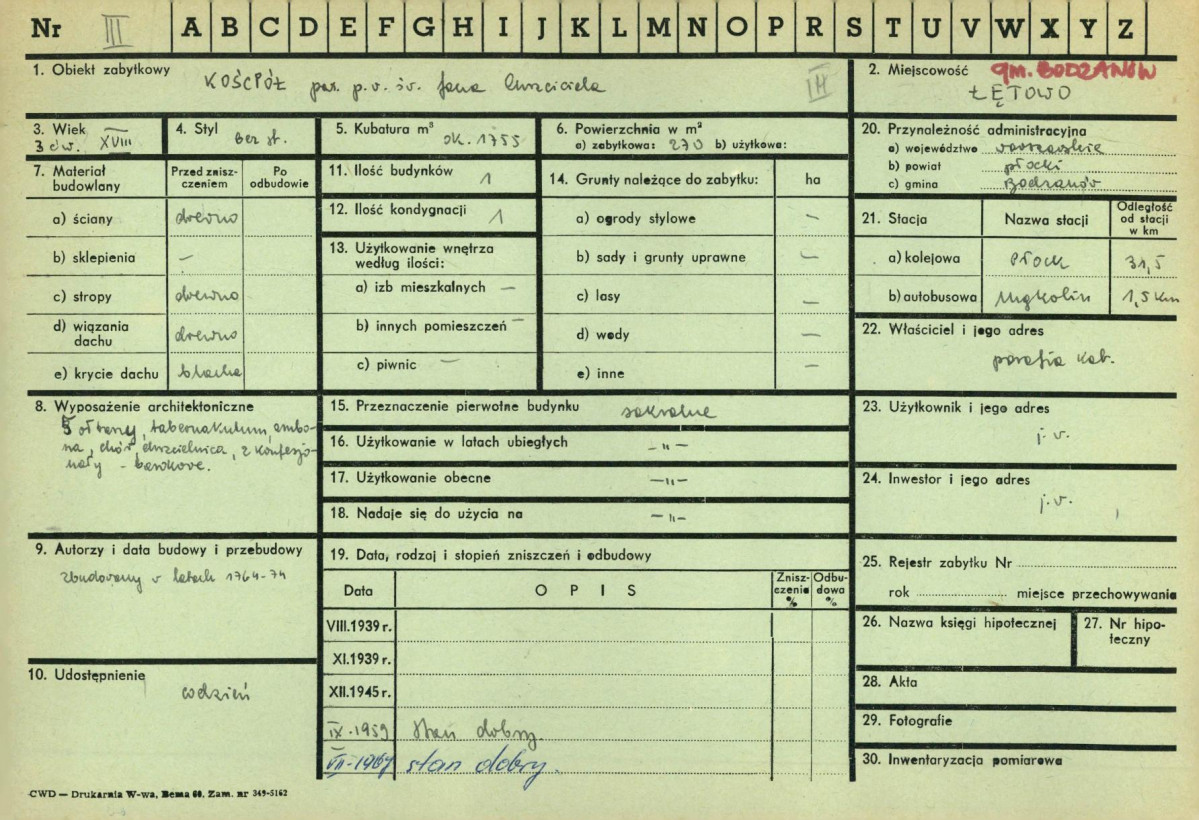 Nr III A B C D E F G H I J K L M N O P R S T U V W X Y Z
1. Obiekt zabytkowy
KOŚCIÓŁ par. p.w. św. Jana Chrzciciela III
2. Miejscowość gm. BODZANÓW
ŁĘTOWO
3. Wiek
3 ćw. XVIII
4. Styl
bez st.
5. Kubatura m³
ok. 1755
6. Powierzchnia w m²
a) zabytkowa: 270 b) użytkowa:
20. Przynależność administracyjna
a) województwo warszawskie
b) powiat płocki
c) gmina Bodzanów
7. Materiał budowlany
Przed zniszczeniem
Po odbudowie
a) ściany drewno
b) sklepienia –
c) stropy drewno
d) wiązania dachu drewno
e) krycie dachu blacha
11. Ilość budynków 1
12. Ilość kondygnacji 1
13. Użytkowanie wnętrza
według ilości:
a) izb mieszkalnych –
b) innych pomieszczeń –
c) piwnic –
14. Grunty należące do zabytku: ha
a) ogrody stylowe –
b) sady i grunty uprawne –
c) lasy –
d) wody –
e) inne –
21. Stacja
Nazwa stacji
Odległość
od stacji
w km
a) kolejowa Płock 31,5
b) autobusowa 1,5 km
22. Właściciel i jego adres
parafia kat.
8. Wyposażenie architektoniczne
5 ołtarzy, tabernakulum, ambo-
na, chór, chrzcielnica, 2 konfesjo-
nały - barokowe.
15. Przeznaczenie pierwotne budynku sakralne
16. Użytkowanie w latach ubiegłych -"-
17. Użytkowanie obecne -"-
18. Nadaje się do użycia na -"-
23. Użytkownik i jego adres
j. w.
24. Inwestor i jego adres
j. w.
9. Autorzy i data budowy i przebudowy
zbudowany w latach 1764-74
10. Udostępnienie
codzień
19. Data, rodzaj i stopień zniszczeń i odbudowy
Data
OPIS
Znisz-
czenia
%
Odbu-
dowa
%
VIII.1939 r.
XI.1939 r.
XII.1945 r.
IX.1959 stan dobry
VII-1967 stan dobry.
25. Rejestr zabytku Nr
rok miejsce przechowywania
26. Nazwa księgi hipotecznej
27. Nr hipo-
teczny
28. Akta
29. Fotografie
30. Inwentaryzacja pomiarowa
CWD — Drukarnia W-wa, Bema 60, Zam. nr 349-5162